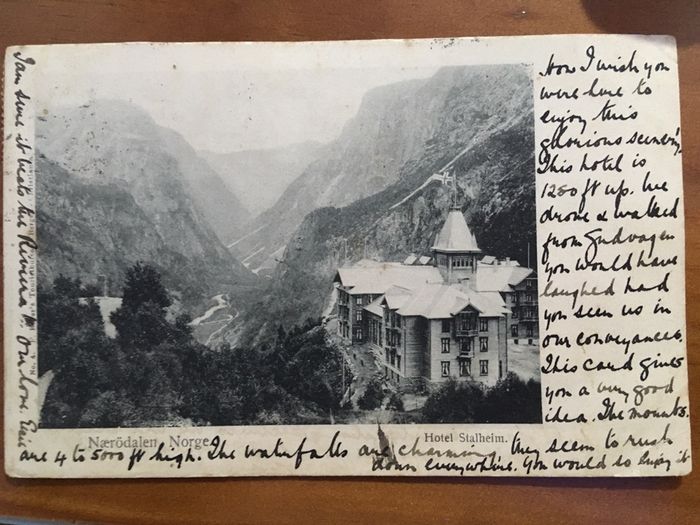 How I wish you
were here to
enjoy this
glorious scenery.
This hotel is
1250 ft up. We
drove & walked
from Gudvagen
you would have
laughed had
you seen us in
our conveyances.
This card gives
you a very good
idea. The mounts.
are 4 to 5000 ft high. The waterfalls are charming they seem to rush
down everywhere. You would so enjoy it
I am sure it beats the Riviera. Our love.
Nærödalen, Norge.
Hotel Stalheim.